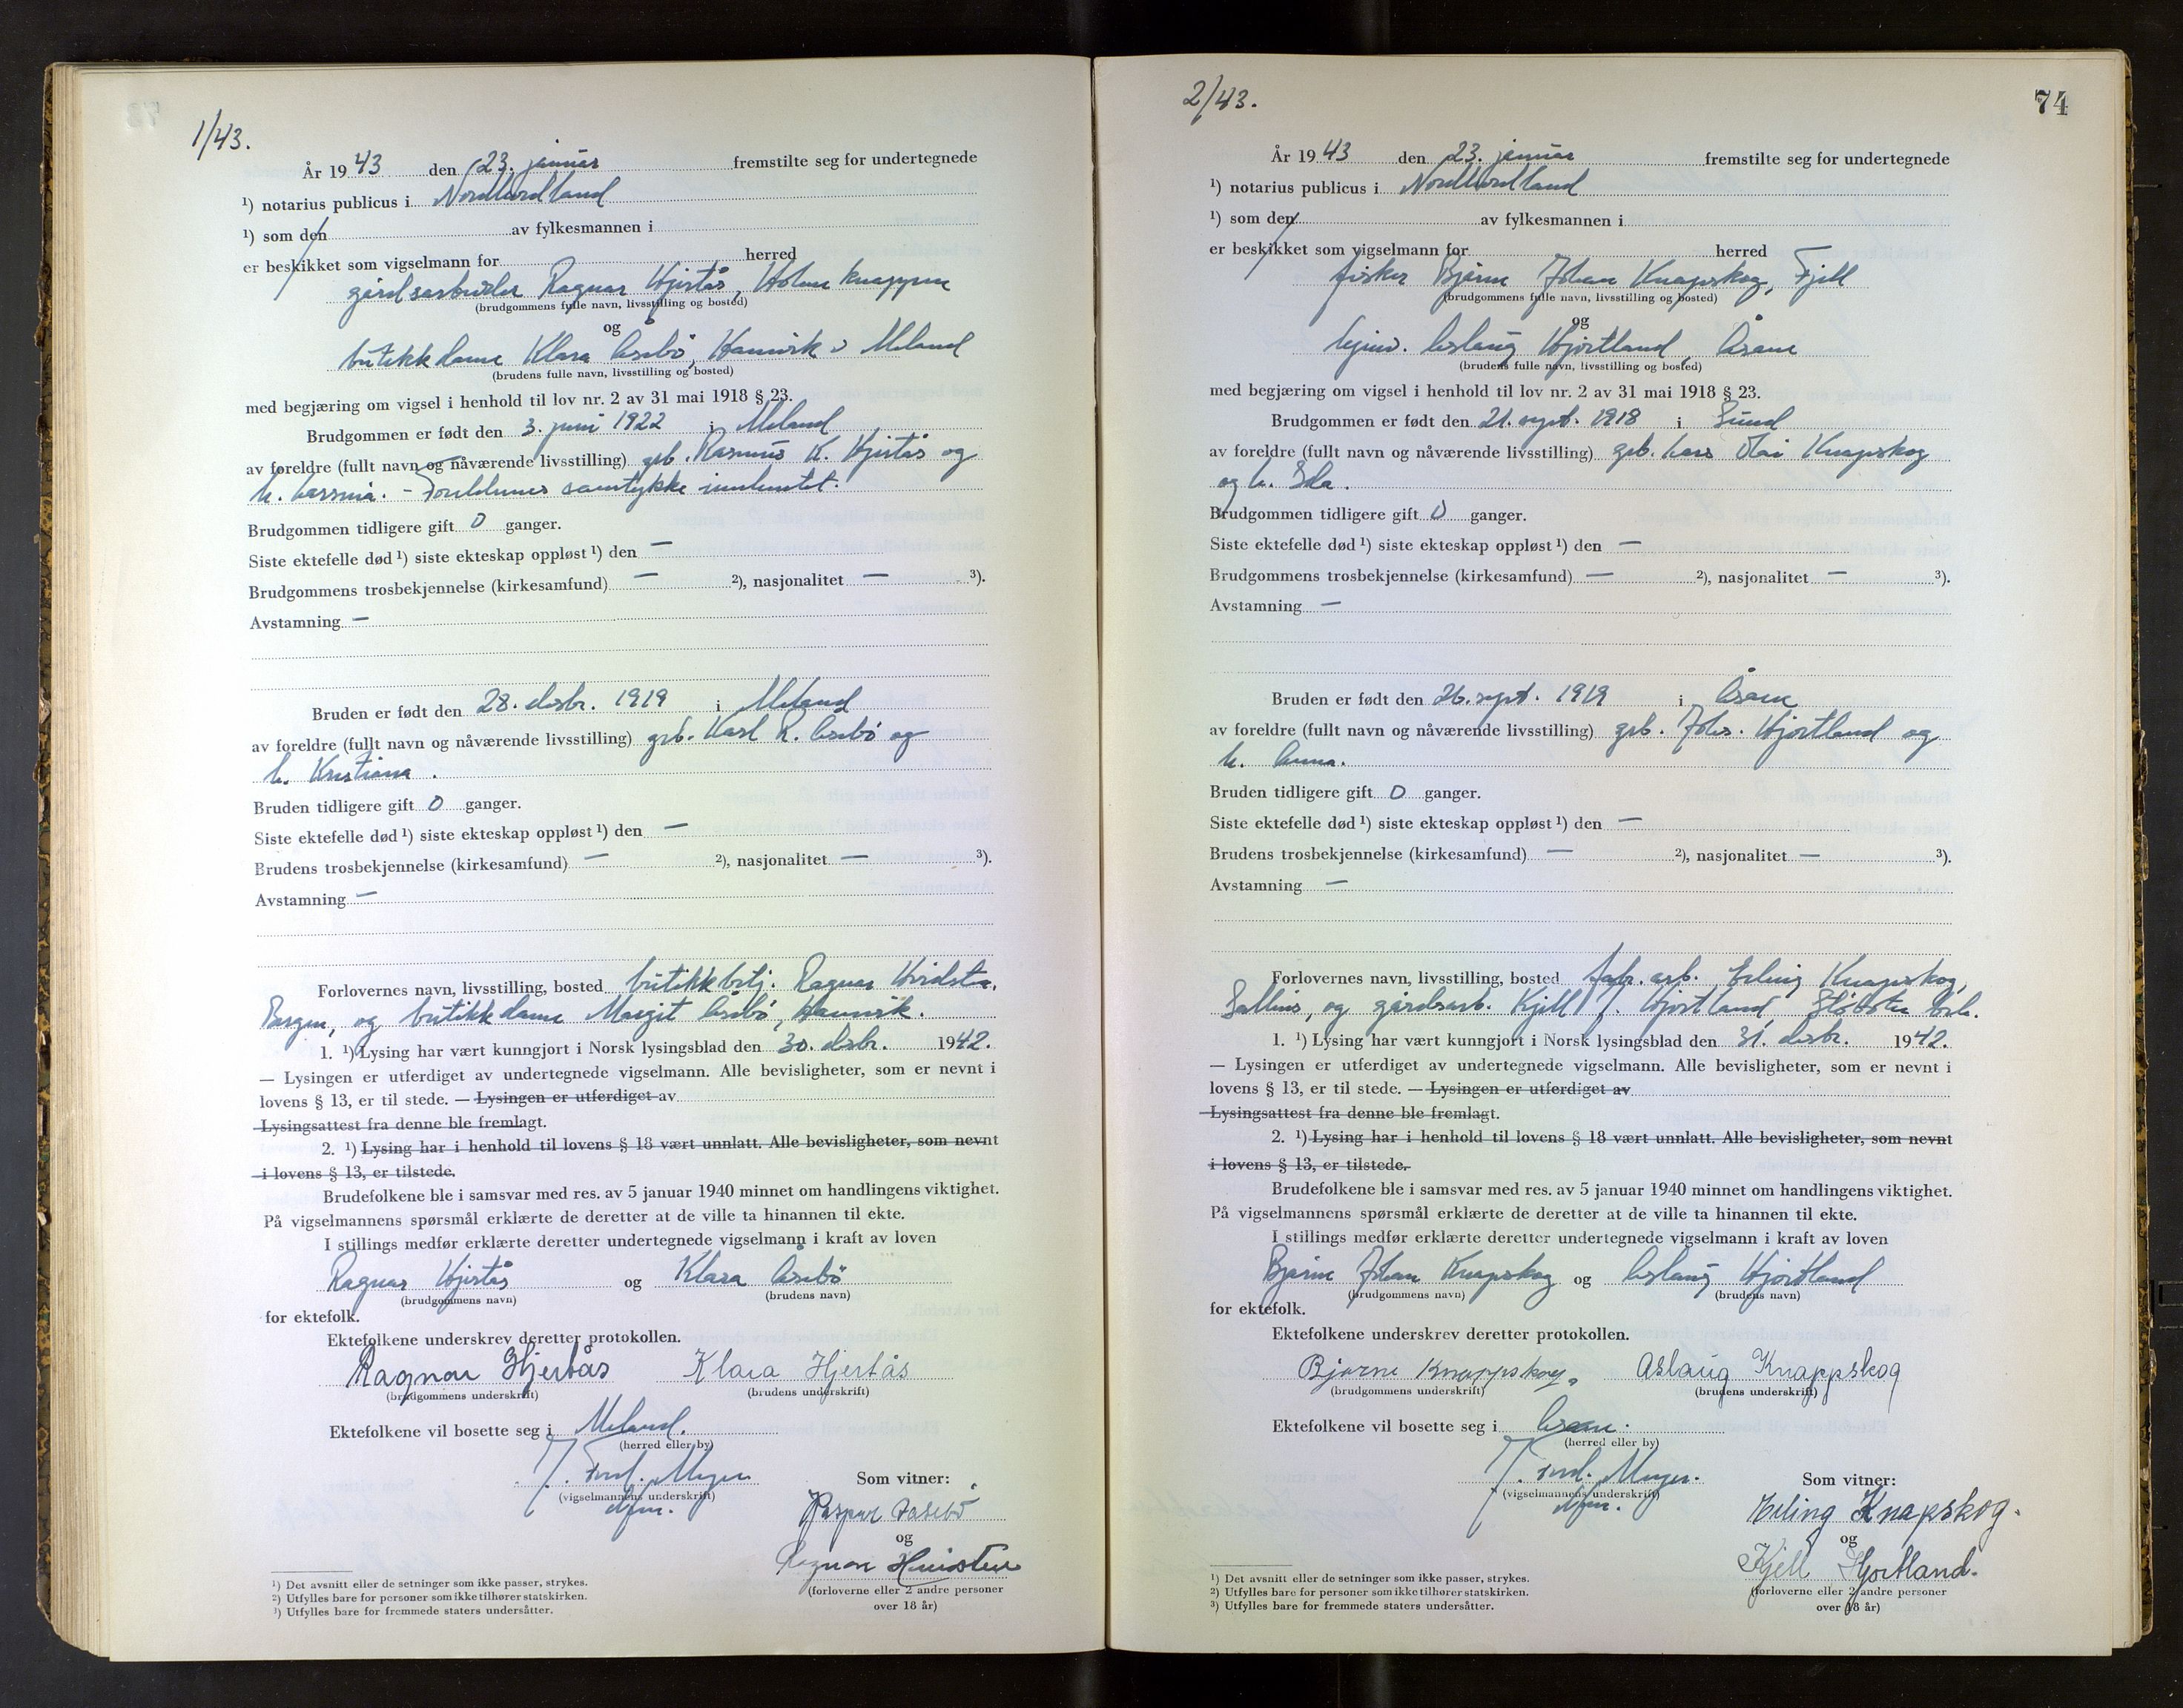 1/43.
År 19 43 den 23. januar fremstilte seg for undertegnede
¹) notarius publicus i Nordhordland
¹) som den av fylkesmannen i
er beskikket som vigselmann for herred
gårdsarbeider Ragnar Hjertås, Holme knappen
(brudgommens fulle navn, livsstilling og bosted)
og
butikkdame Klara Åsebö, Hanvik i Meland
(brudens fulle navn, livsstilling og bosted)
med begjæring om vigsel i henhold til lov nr. 2 av 31 mai 1918 § 23.
Brudgommen er født den 3. juni 1922 i Meland
av foreldre (fullt navn og nåværende livsstilling) grb. Rasmus K. Hjertås og
h. - Foreldrenes samtykke innhentet.
Brudgommen tidligere gift 0 ganger.
Siste ektefelle død ¹) siste ekteskap oppløst ¹) den —
Brudgommens trosbekjennelse (kirkesamfund) — ²), nasjonalitet — ³).
Avstamning —
Bruden er født den 28. desbr. 1919 i Meland
av foreldre (fullt navn og nåværende livsstilling) grb. Karl R. Åsebö og
h. Kristiana.
Bruden tidligere gift 0 ganger.
Siste ektefelle død ¹) siste ekteskap oppløst ¹) den —
Brudens trosbekjennelse (kirkesamfund) — ²), nasjonalitet — ³).
Avstamning —
Forlovernes navn, livsstilling, bosted butikkbetj. Ragnar
Bergen, og butikkdame Margit Åsebö, Hanvik.
1. ¹) Lysing har vært kunngjort i Norsk lysingsblad den 30. desbr. 1942.
— Lysingen er utferdiget av undertegnede vigselmann. Alle bevisligheter, som er nevnt i
lovens § 13, er til stede. — Lysingen er utferdiget av
Lysingsattest fra denne ble fremlagt.
2. ¹) Lysing har i henhold til lovens § 18 vært unnlatt. Alle bevisligheter, som nevnt
i lovens § 13, er tilstede.
Brudefolkene ble i samsvar med res. av 5 januar 1940 minnet om handlingens viktighet.
På vigselmannens spørsmål erklærte de deretter at de ville ta hinannen til ekte.
I stillings medfør erklærte deretter undertegnede vigselmann i kraft av loven
Ragnar Hjertås og Klara Åsebö
(brudgommens navn) (brudens navn)
for ektefolk.
Ektefolkene underskrev deretter protokollen.
Ragnar Hjertås Klara Hjertås
(brudgommens underskrift) (brudens underskrift)
Ektefolkene vil bosette seg i Meland.
(herred eller by)
J. Fred. Meyer
(vigselmannens underskrift)
Som vitner:
Kaspar Aasebö
og
Ragnar
(forloverne eller 2 andre personer
over 18 år)
¹) Det avsnitt eller de setninger som ikke passer, strykes.
²) Utfylles bare for personer som ikke tilhører statskirken.
³) Utfylles bare for fremmede staters undersåtter.
2/43.
74
År 19 43 den 23. januar fremstilte seg for undertegnede
¹) notarius publicus i Nordhordland
¹) som den av fylkesmannen i
er beskikket som vigselmann for herred
fisker Bjarne Johan Knapskog, Fjell
(brudgommens fulle navn, livsstilling og bosted)
og
Aslaug Hjortland, Åsane
(brudens fulle navn, livsstilling og bosted)
med begjæring om vigsel i henhold til lov nr. 2 av 31 mai 1918 § 23.
Brudgommen er født den 21. sept. 1918 i Sund
av foreldre (fullt navn og nåværende livsstilling) grb. Lars Olai Knapskog
og h.
Brudgommen tidligere gift 0 ganger.
Siste ektefelle død ¹) siste ekteskap oppløst ¹) den —
Brudgommens trosbekjennelse (kirkesamfund) — ²), nasjonalitet — ³).
Avstamning —
Bruden er født den 26. sept. 1919 i Åsane
av foreldre (fullt navn og nåværende livsstilling) grb. Johs. Hjortland og
h. Anna.
Bruden tidligere gift 0 ganger.
Siste ektefelle død ¹) siste ekteskap oppløst ¹) den —
Brudens trosbekjennelse (kirkesamfund) — ²), nasjonalitet — ³).
Avstamning —
Forlovernes navn, livsstilling, bosted fabr. arb. Erling Knapskog,
og gårdsarb. Kjell J. Hjortland,
1. ¹) Lysing har vært kunngjort i Norsk lysingsblad den 31. desbr. 1942.
— Lysingen er utferdiget av undertegnede vigselmann. Alle bevisligheter, som er nevnt i
lovens § 13, er til stede. — Lysingen er utferdiget av
Lysingsattest fra denne ble fremlagt.
2. ¹) Lysing har i henhold til lovens § 18 vært unnlatt. Alle bevisligheter, som nevnt
i lovens § 13, er tilstede.
Brudefolkene ble i samsvar med res. av 5 januar 1940 minnet om handlingens viktighet.
På vigselmannens spørsmål erklærte de deretter at de ville ta hinannen til ekte.
I stillings medfør erklærte deretter undertegnede vigselmann i kraft av loven
Bjarne Johan Knapskog og Aslaug Hjortland
(brudgommens navn) (brudens navn)
for ektefolk.
Ektefolkene underskrev deretter protokollen.
Bjarne Knappskog. Aslaug Knappskog
(brudgommens underskrift) (brudens underskrift)
Ektefolkene vil bosette seg i Åsane.
(herred eller by)
J. Fred. Meyer.
(vigselmannens underskrift)
Som vitner:
Erling Knapskog.
og
Kjell Hjortland.
(forloverne eller 2 andre personer
over 18 år)
¹) Det avsnitt eller de setninger som ikke passer, strykes.
²) Utfylles bare for personer som ikke tilhører statskirken.
³) Utfylles bare for fremmede staters undersåtter.